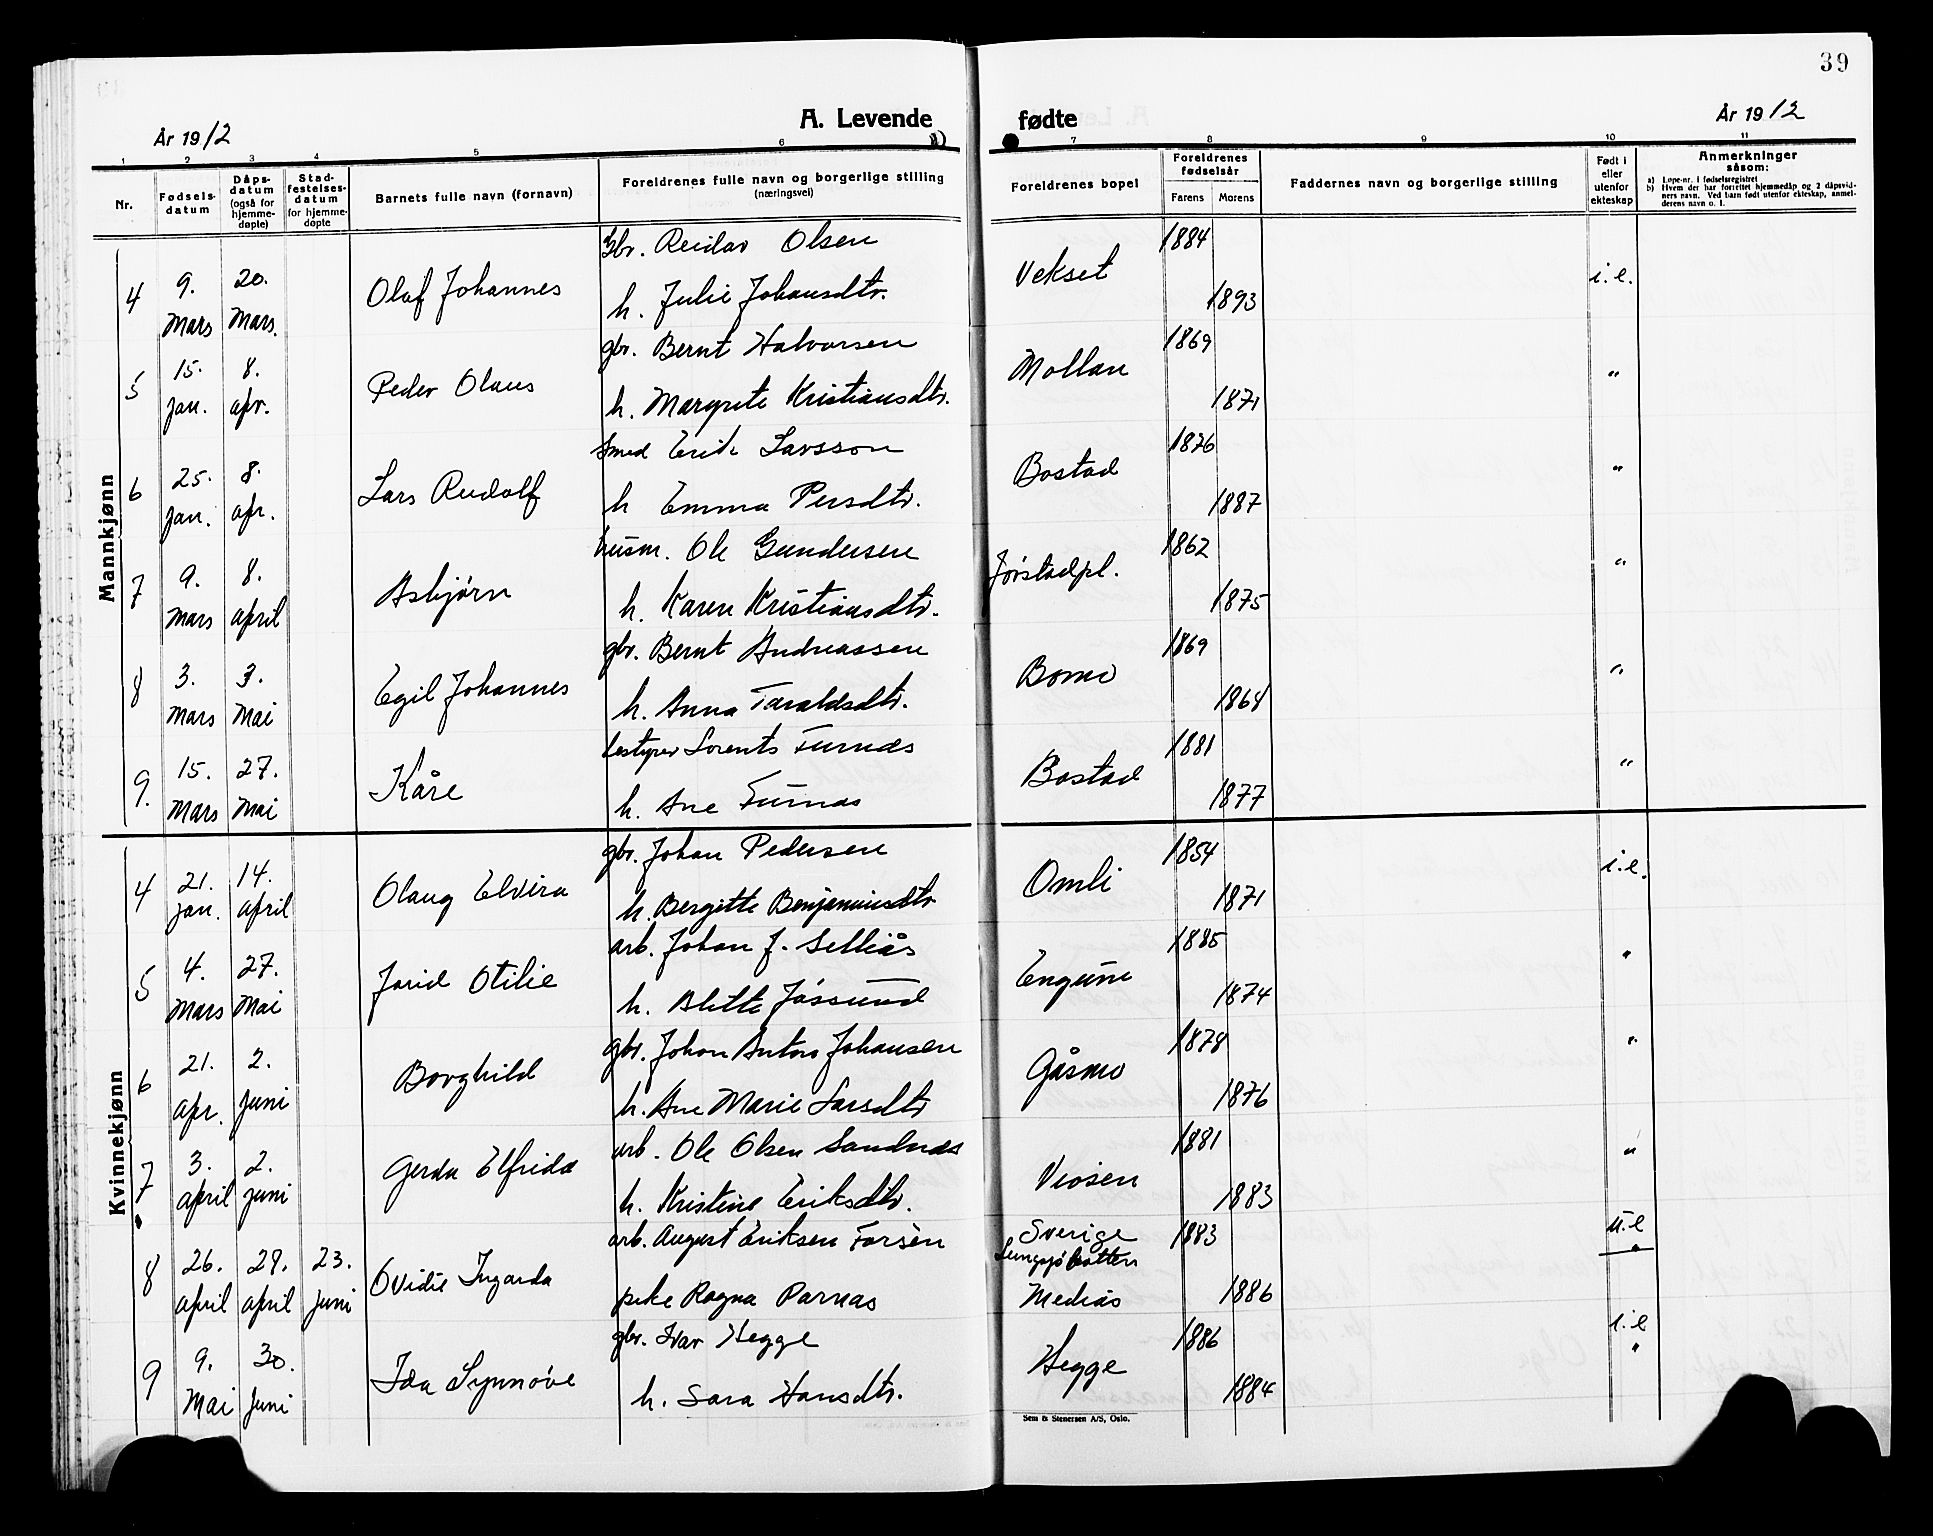 39
A. Levende fødte
År 1912
År 1912
1 2 3 4 5 6 1) 7 8 9 10 11
Nr.
Fødsels-
datum
Dåps-
datum
(også for
hjemme-
døpte)
Stad-
festelses-
datum
for hjemme-
døpte
Barnets fulle navn (fornavn)
Foreldrenes fulle navn og borgerlige stilling
(næringsvei)
Foreldrenes bopel
Foreldrenes
fødselsår
Farens Morens
Faddernes navn og borgerlige stilling
Født i
eller
utenfor
ekteskap
Anmerkninger
såsom:
a) Løpe-nr. i fødselsregistret
b) Hvem der har forrettet hjemmedåp og 2 dåpsvid-
ners navn. Ved barn født utenfor ekteskap, anmel-
derens navn o. l.
Mannkjønn
gbr. Reidar Olsen 1884
4 9. Mars 20. Mars. Olaf Johannes Vekset i.e.
h. Julie Johansdtr. 1893
gbr. Bernt Halvorsen 1869
5 15. jan. 8. apr. Peder Olaus Mollan "
h. Margrete Kristiansdtr. 1871
smed Erik Larsson 1876
6 25. jan. 8. apr. Lars Rudolf Bostad "
h Emma Persdtr. 1887
husm. Ole Gundersen 1862
7 9. Mars 8. april Asbjørn Jørstadpl. "
h. Karen Kristiansdtr. 1875
gbr. Bernt Andreassen 1869
8 3. Mars 3. Mai Egil Johannes Bomo "
h. Anna Taraldsdtr. 1864
bestyrer Lorents Furnes 1881
9. 15. Mars 27. Mai Kåre Bostad "
h. Ane Furnes 1877
Kvinnekjønn
gbr. Johan Pedersen 1854
4 21. jan. 14. april Olaug Elvira Omli i.e.
h. Bergitte Benjaminsdtr 1871
arb. Johan J. Selliås 1885
5 4. Mars 27. Mai Jorid Otilie "
h. Blette Jössund 1874
gbr. Johan Anton Johansen 1878
6 21. apr. 2. juni Borghild Gåsmo "
h. Ane Marie Larsdtr 1876
arb. Ole Olsen Sandnes 1881
7 3. april 2. juni Gerda Elfrida Viosen "
h. Kristine Eriksdtr. 1883
arb. August Eriksen Forsèn Sverige 1883 u.e
8 26. april 28. april 23. juni Ovidie Ingarda
pike Ragna Parnas Mediås 1886
gbr. Ivar Hegge 1886 i.e
9 9. Mai 30. Juni Ida Synnøve Hegge "
h. Sara Hansdtr. 1884
Sem & Stenersen A/S, Oslo.